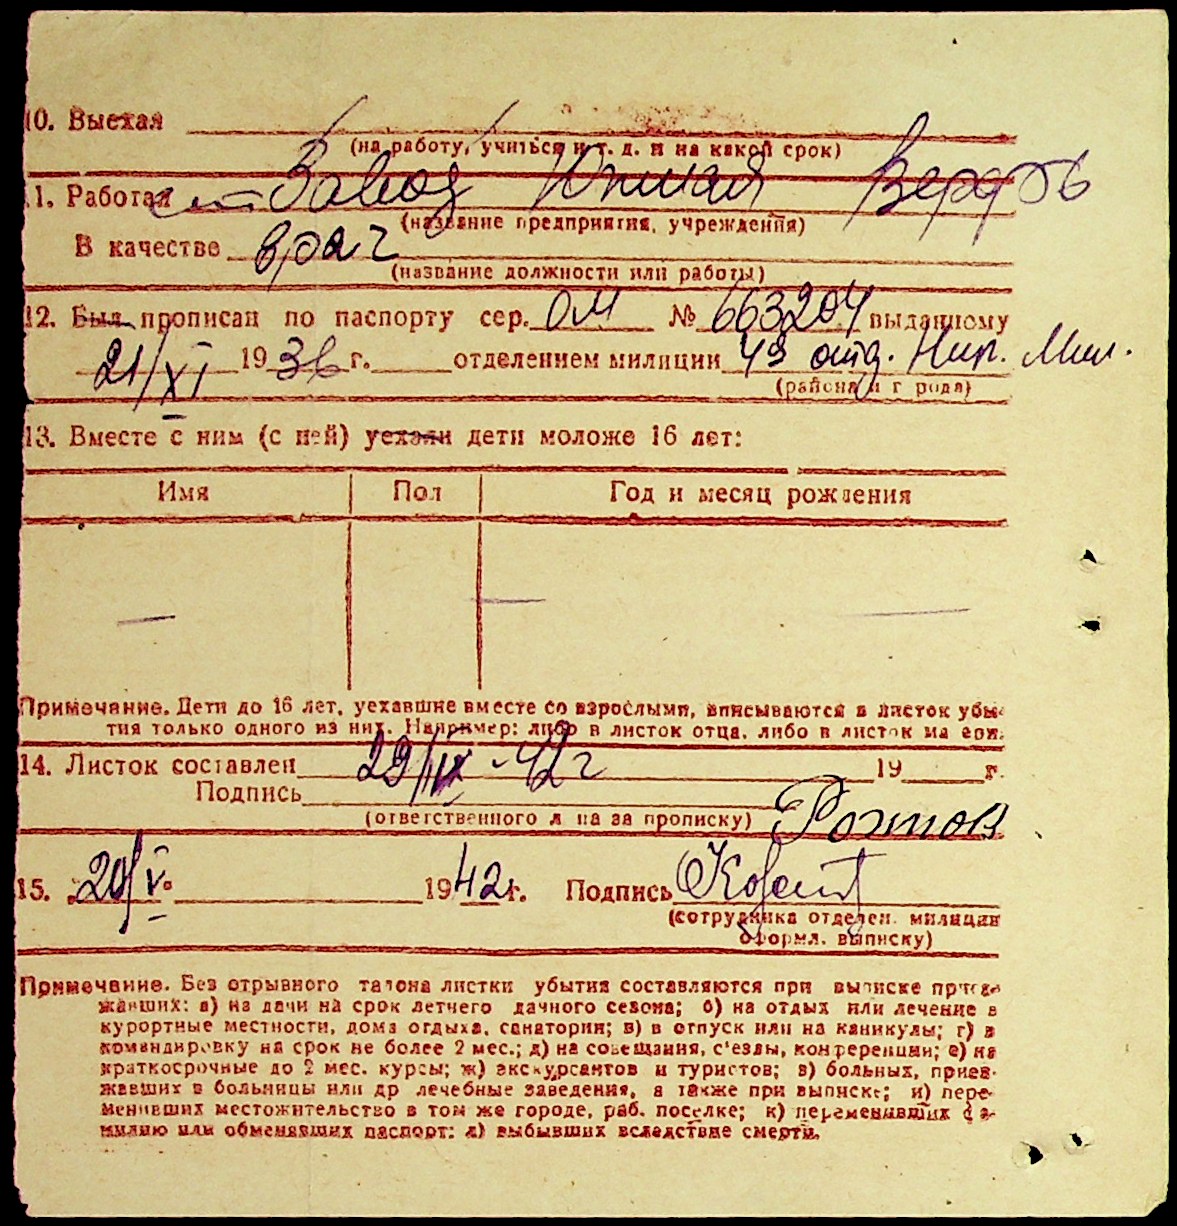 10. Выехал
(на работу, учиться и т. д. и на какой срок)
11. Работал Завод Южная Верфь
(название предприятия, учреждения)
В качестве врач
(название должности или работы)
12. Был прописан по паспорту сер. ОМ № 663204 выданному
21/XI 1936 г. отделением милиции 49 отд. Мил.
(района и города)
13. Вместе с ним (с ней) уехали дети моложе 16 лет:
Имя Пол Год и месяц рождения
— — —
Примечание. Дети до 16 лет, уехавшие вместе со взрослыми, вписываются в листок убы-
тия только одного из них. Например: либо в листок отца, либо в листок матери.
14. Листок составлен 29/IV - 42 г 19 г.
Подпись
(ответственного лица за прописку)
15. 20/V 1942 г. Подпись
(сотрудника отделен. милиции
оформл. выписку)
Примечание. Без отрывного талона листки убытия составляются при выписке приез-
жавших: а) на дачи на срок летнего дачного сезона; б) на отдых или лечение в
курортные местности, дома отдыха, санатории; в) в отпуск или на каникулы; г) в
командировку на срок не более 2 мес.; д) на совещания, с'езды, конференции; е) на
краткосрочные до 2 мес. курсы; ж) экскурсантов и туристов; з) больных, приез-
жавших в больницы или др лечебные заведения, а также при выписке; и) пере-
менивших местожительство в том же городе, раб. поселке; к) переменивших фа-
милию или обменявших паспорт; л) выбывших вследствие смерти.